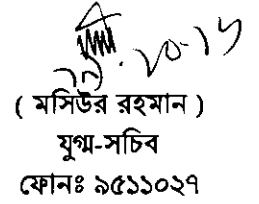 ( মসিউর রহমান )
যুগ্ম-সচিব
ফোনঃ ৯৫১১০২৭